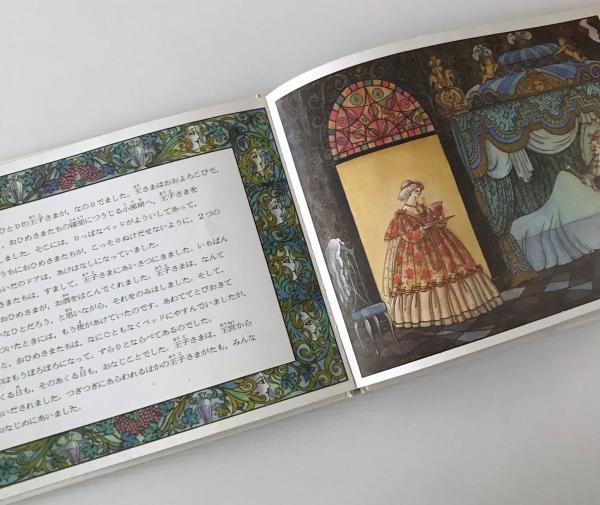 ひとりの王子さまが、なのりでました。王さまはおおよろこびで、
、おひめさまたちの寝室につうじる小部屋へ、王子さまを
しました。そこには、りっぱなベッドがよういしてあって、
うちにおひめさまたちが、こっそりぬけだせないように、2つの
いだのドアは、あけはなしになっていました。
さまたちは、すまして、王子さまにあいさつにきました。いちばん
おひめさまが、お酒をはこんでくれました。王子さまは、なんて
なひとだろう、と思いながら、それをのみほしました。そして、
ついたときには、もう夜があけていたのです。あわててとびおきて
と、おひめさまたちは、なにごともなくベッドにやすんでいましたが、
つはもうぼろぼろになって、ずらりとならべてあるのでした。
くる日も、そのあくる日も、おなじことでした。王子さまは、王宮から
いだされました。つぎつぎにあらわれるほかの王子さまがたも、みんな
おなじめにあいました。